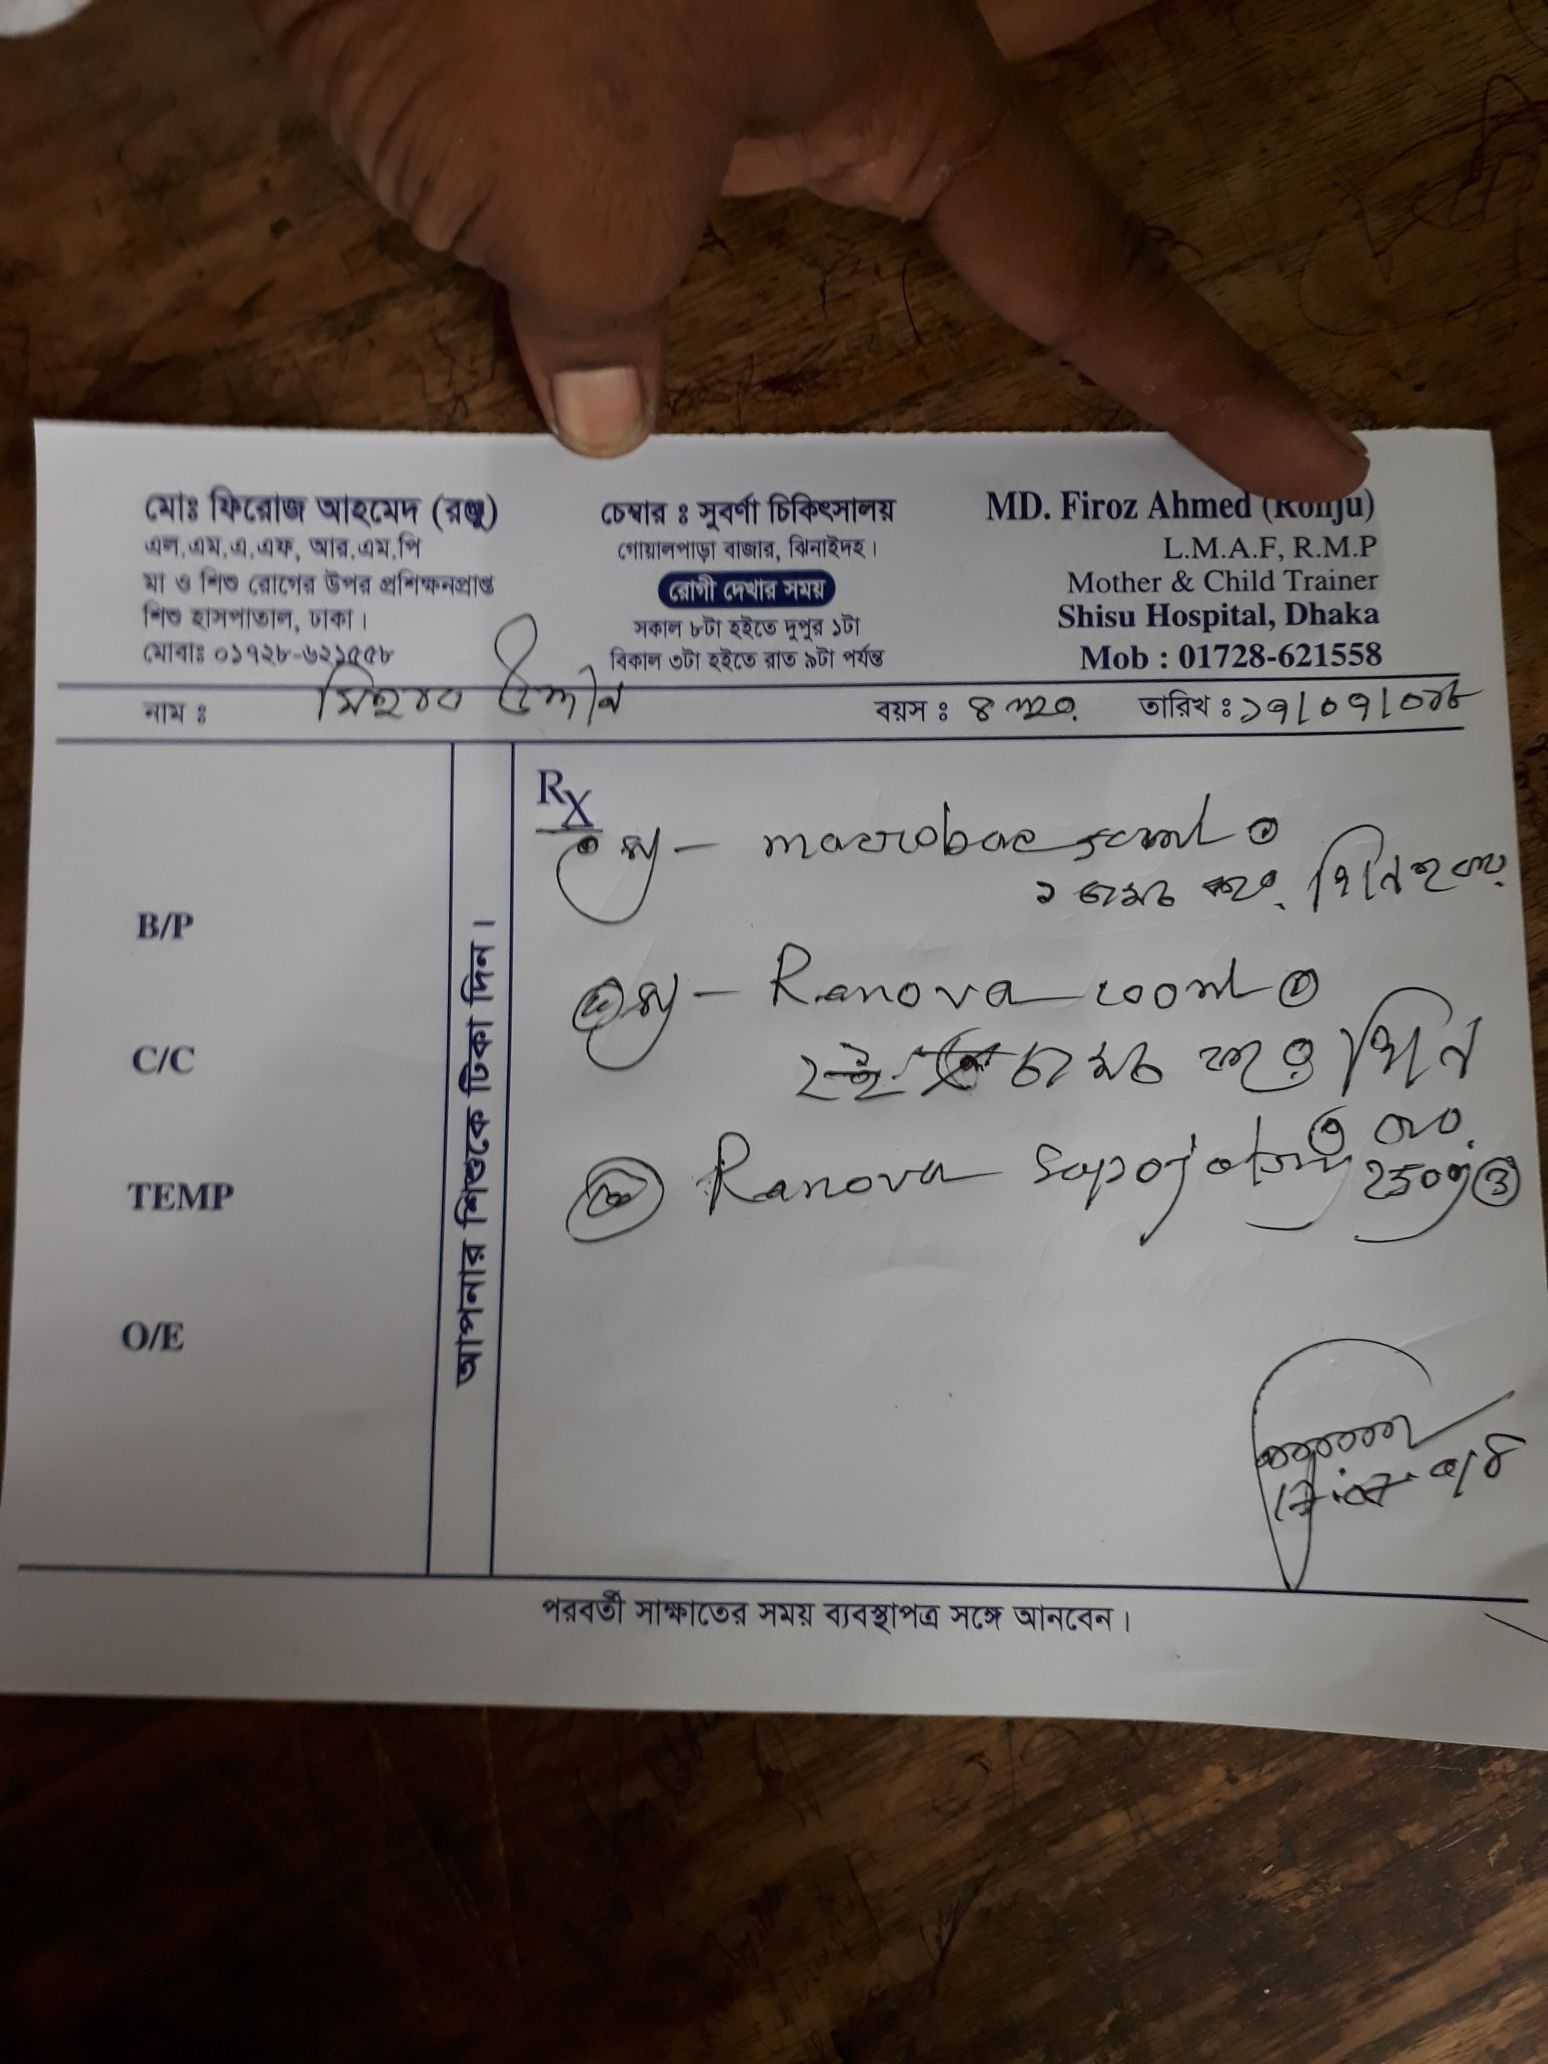 মোঃ ফিরোজ আহমেদ (রঞ্জু)
এল.এম.এ.এফ, আর.এম.পি
মা ও শিশু রোগের উপর প্রশিক্ষনপ্রাপ্ত
শিশু হাসপাতাল, ঢাকা।
মোবাঃ ০১৭২৮-৬২১৫৫৮
চেম্বার ঃ সুবর্ণা চিকিৎসালয়
গোয়ালপাড়া বাজার, ঝিনাইদহ।
রোগী দেখার সময়
সকাল ৮টা হইতে দুপুর ১টা
বিকাল ৩টা হইতে রাত ৯টা পর্যন্ত
MD. Firoz Ahmed (Ronju)
L.M.A.F, R.M.P
Mother & Child Trainer
Shisu Hospital, Dhaka
Mob : 01728-621558
নাম ঃ
বয়স ঃ ৪ তারিখ ঃ ১৭/০৭/০১৮
B/P
C/C
TEMP
O/E
আপনার শিশুকে টিকা দিন।
Rx
১ চামচ করে
Ranova 100ml
চামচ করে ৩
Ranova 250 3
পরবর্তী সাক্ষাতের সময় ব্যবস্থাপত্র সঙ্গে আনবেন।